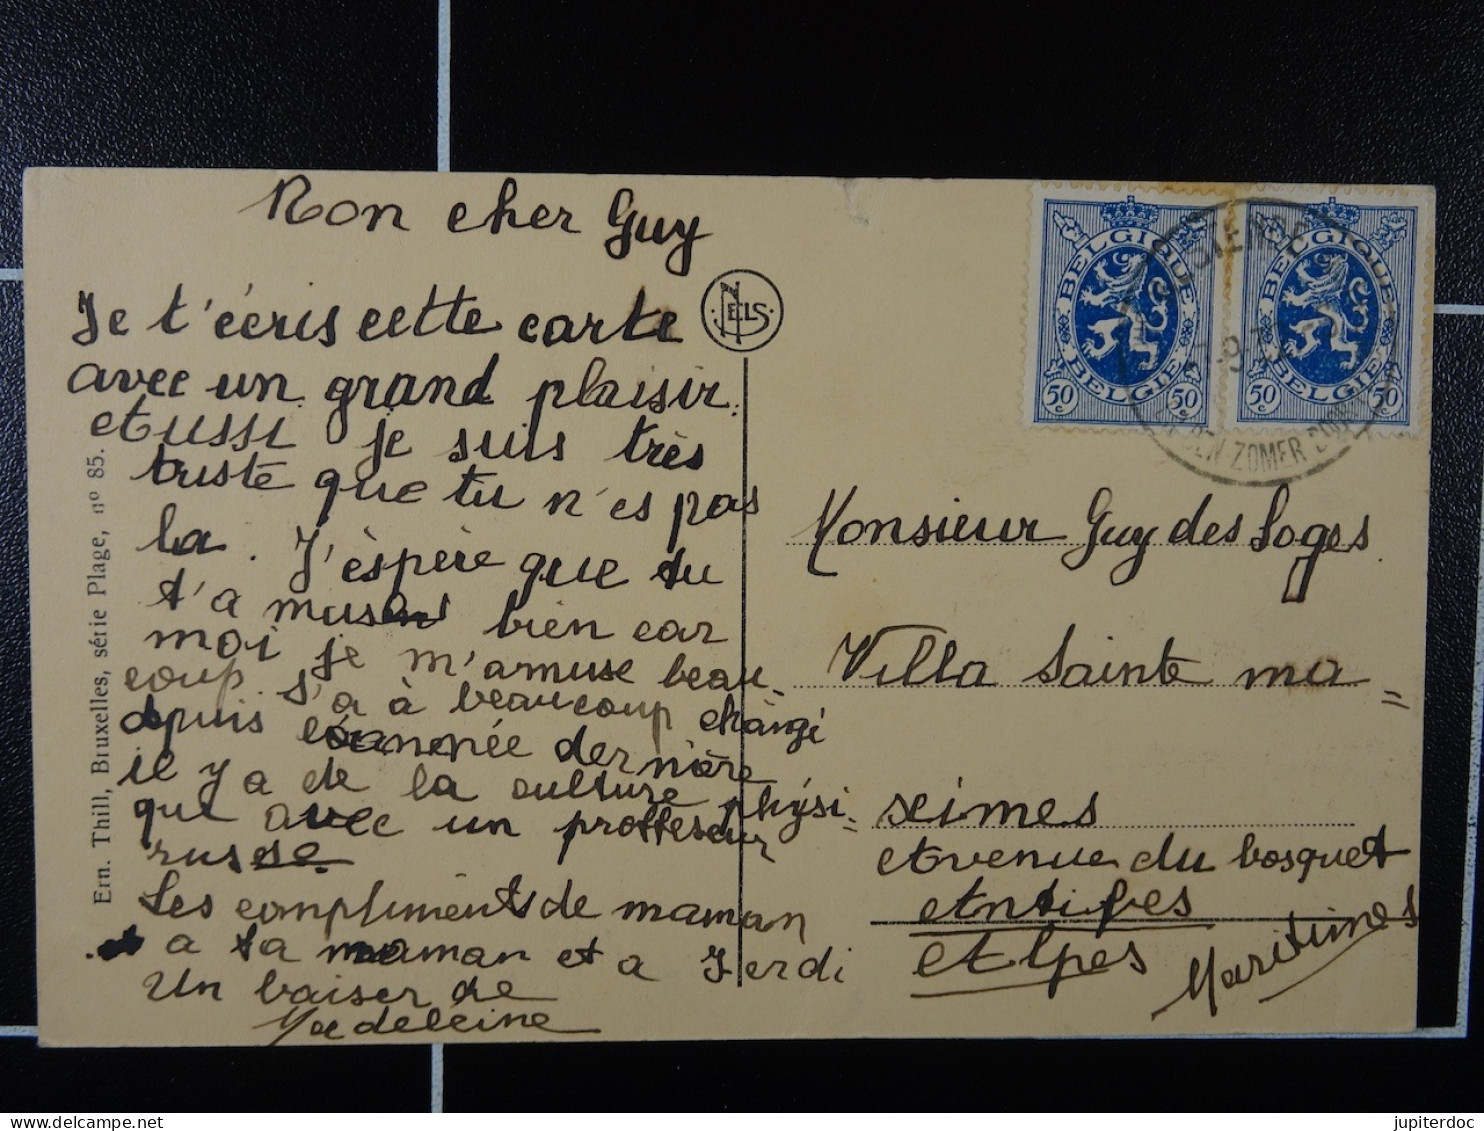 Mon cher Guy
Je t'écris cette carte
avec un grand plaisir.
Aussi je suis très
triste que tu n'es pas
la. J'éspère que tu
t'amuses bien car
moi je m'amuse beau-
coup. s'a à beaucoup changi
depuis l'année dernière
il y a de la culture physi=
que avec un proffesseur
russe
Les compliments de maman
a ta maman et a Ferdi
Un baiser de
Madeleine
Ern. Thill, Bruxelles, série Plage, nº 85.
NELS
BELGIQUE
BELGIE
50 c
50 c
BELGIQUE
BELGIE
50 c
50 c
OOSTENDE
ZOMER
Monsieur Guy des Loges
Villa Sainte ma=
xeimes
Avenue du bosquet
Antibes
Alpes Maritimes
jupiterdoc